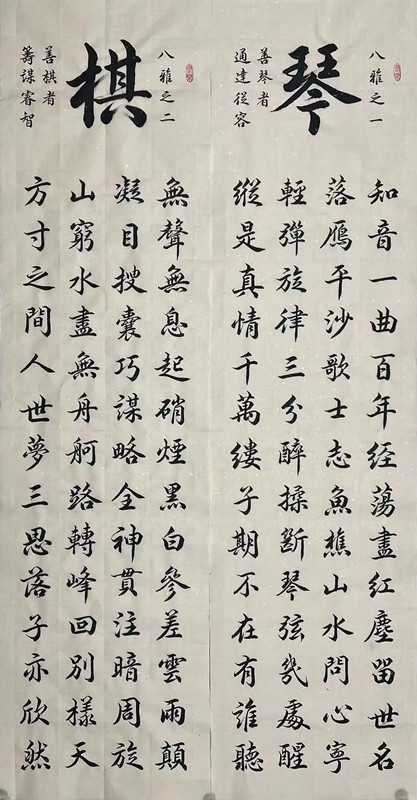 八雅之一
琴
善琴者
通達從容
知音一曲百年经蕩盡紅塵畄世名
落鴈平沙歌士志魚樵山水問心寧
輕彈旋律三分醉揉斷琴弦幾處醒
縱是真情千萬縷子期不在有誰聽
八雅之二
棋
善棋者
籌謀睿智
無聲無息起硝煙黑白參差雲雨顛
凝目搜囊巧謀略全神貫注暗周旋
山窮水盡無舟舸路轉峰回別樣天
方寸之間人世夢三思落子亦欣然